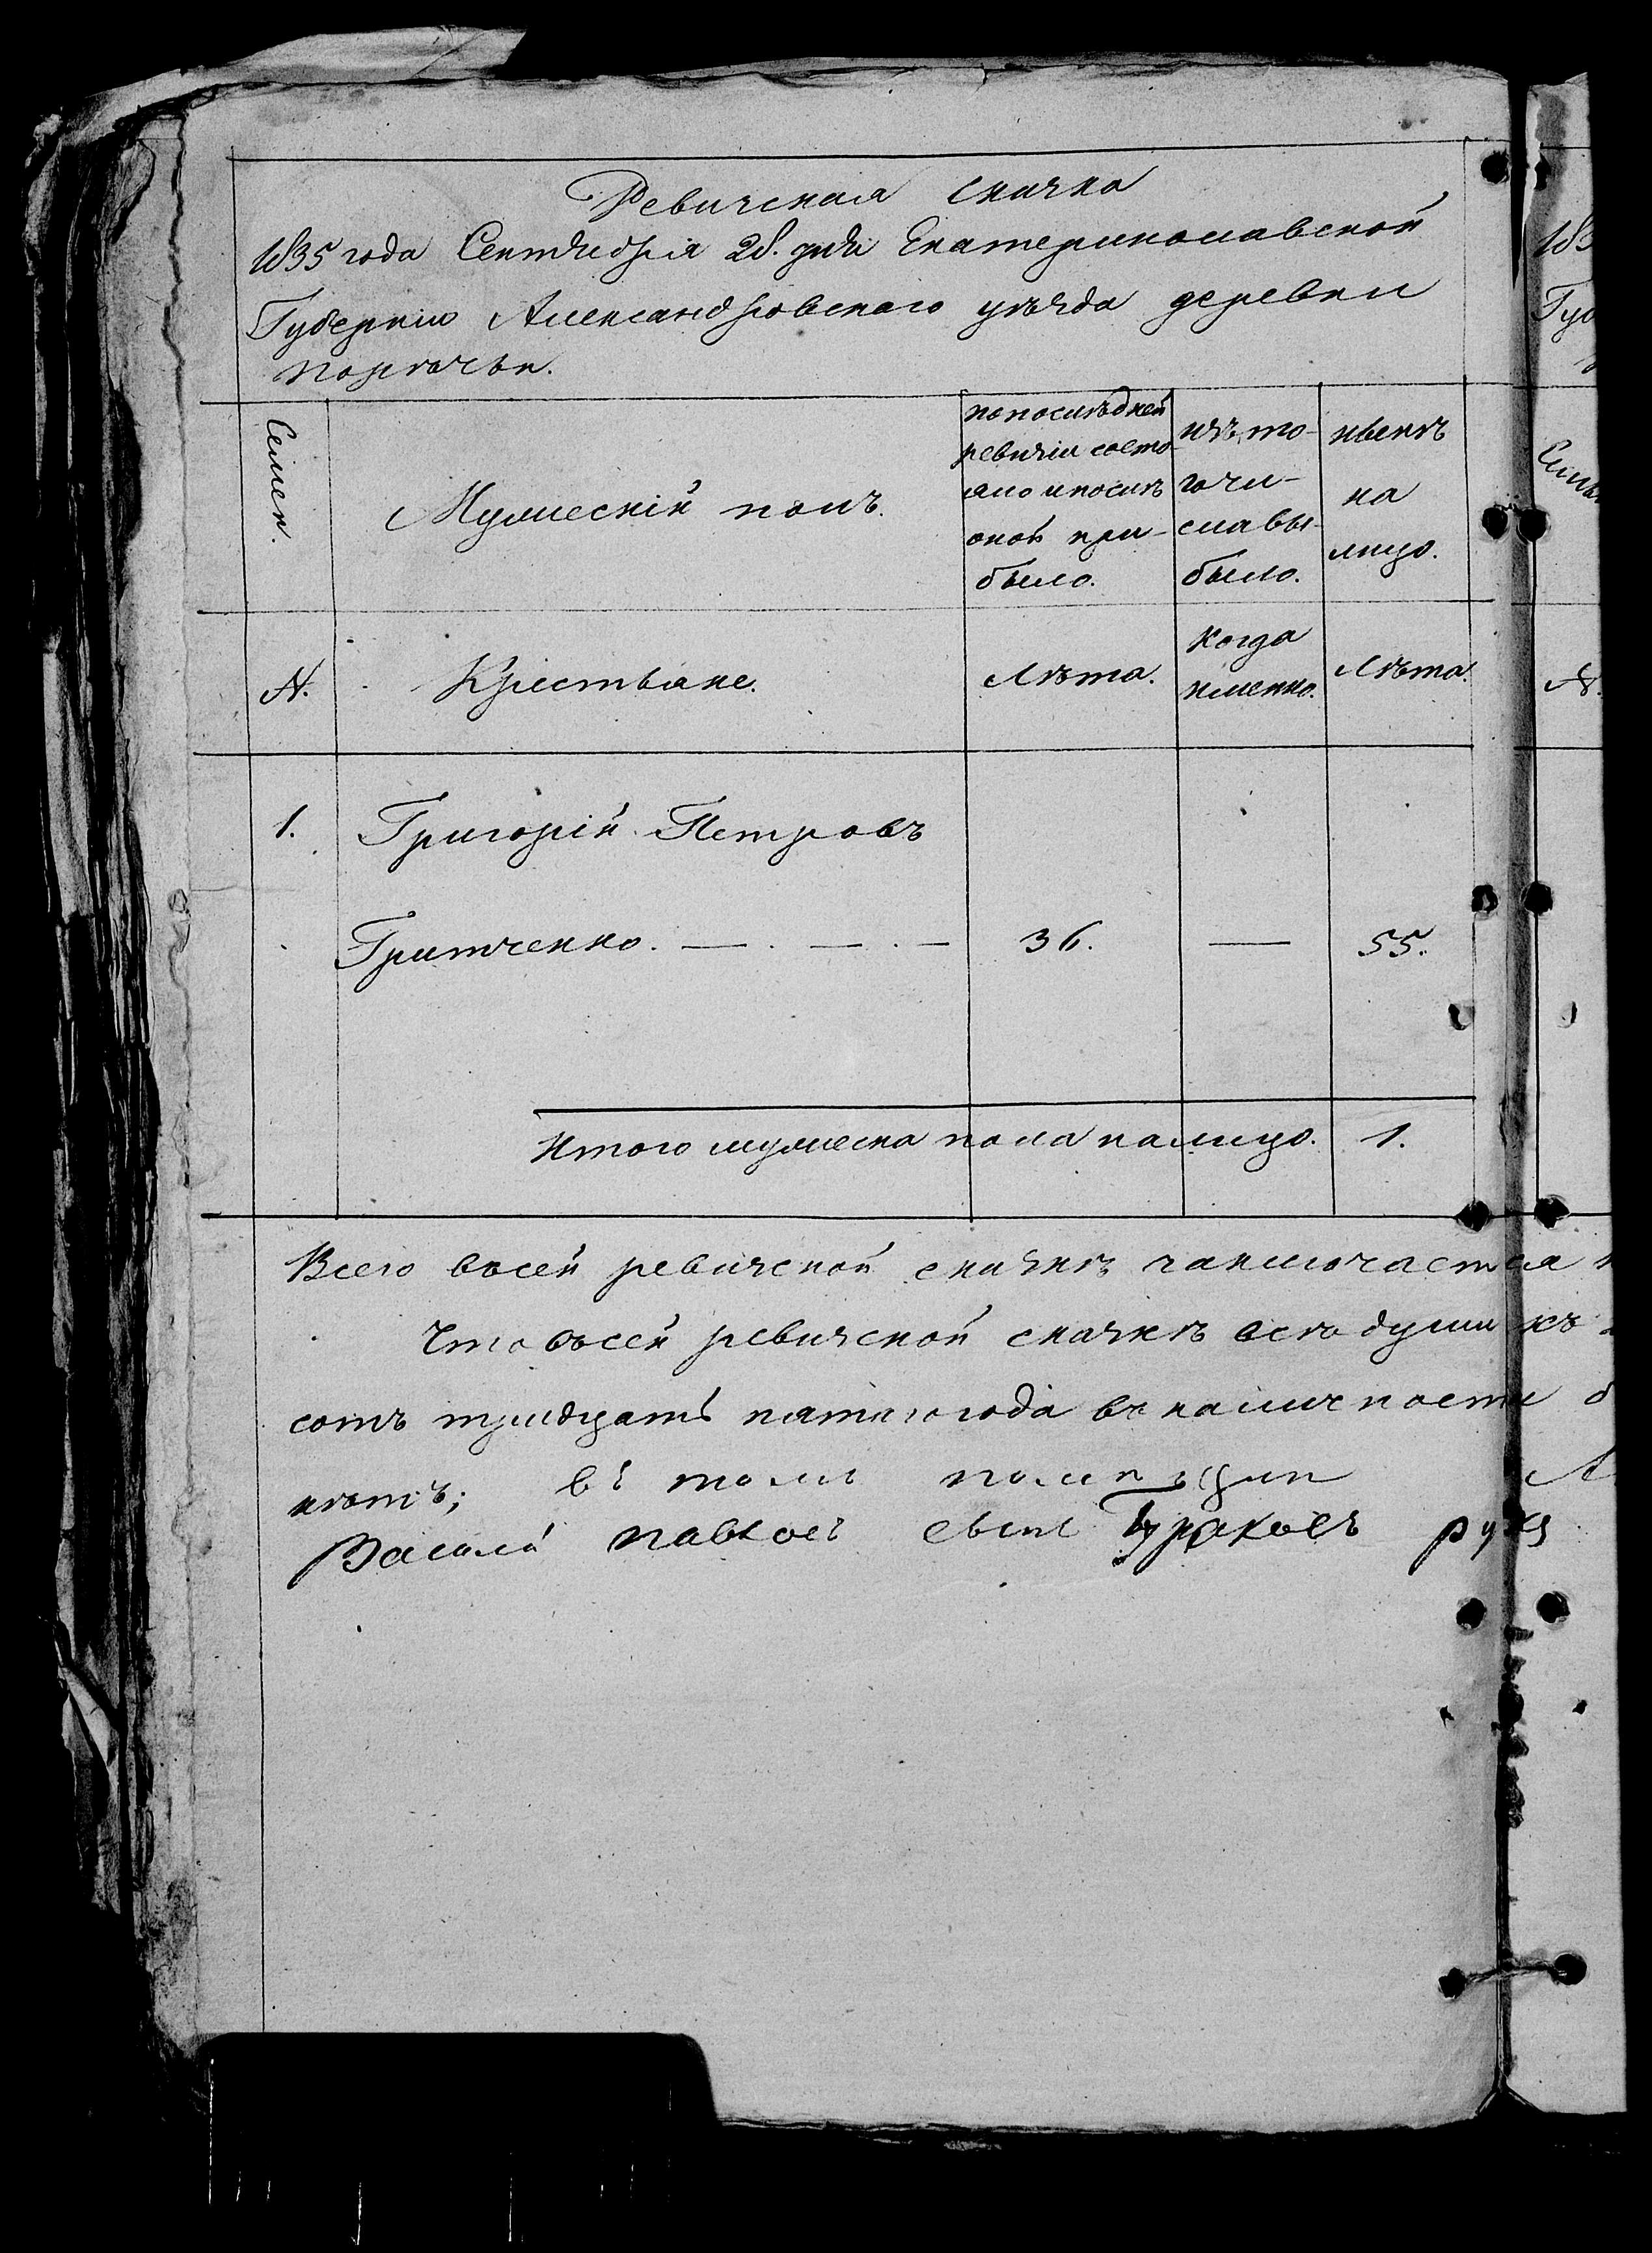 Ревизская сказка
1835 года Сентября 28. дня Екатеринославской
Губернии Александровского уѣзда деревни
Порѣчья.
Семьи.
Мужескій полъ.
по послѣдней
ревизіи состо-
яло и послѣ
оной при-
было.
изъ то-
го чи-
сла вы-
было.
нынѣ
на
лицо.
№.
Крестьяне.
Лѣта.
Когда
именно.
Лѣта.
1. Григорій Петровъ
Гритченко. — . — . — 36. — 55.
Итого мужеска пола на лицо. 1.
Всего въ сей ревизской сказкѣ заключается
Что въ сей ревизской сказкѣ всѣ души къ
сотъ тридцать пятого года въ наличности
нѣтъ; въ томъ
Василий Павловъ сынъ руку
183
Губ
Семьи
№.